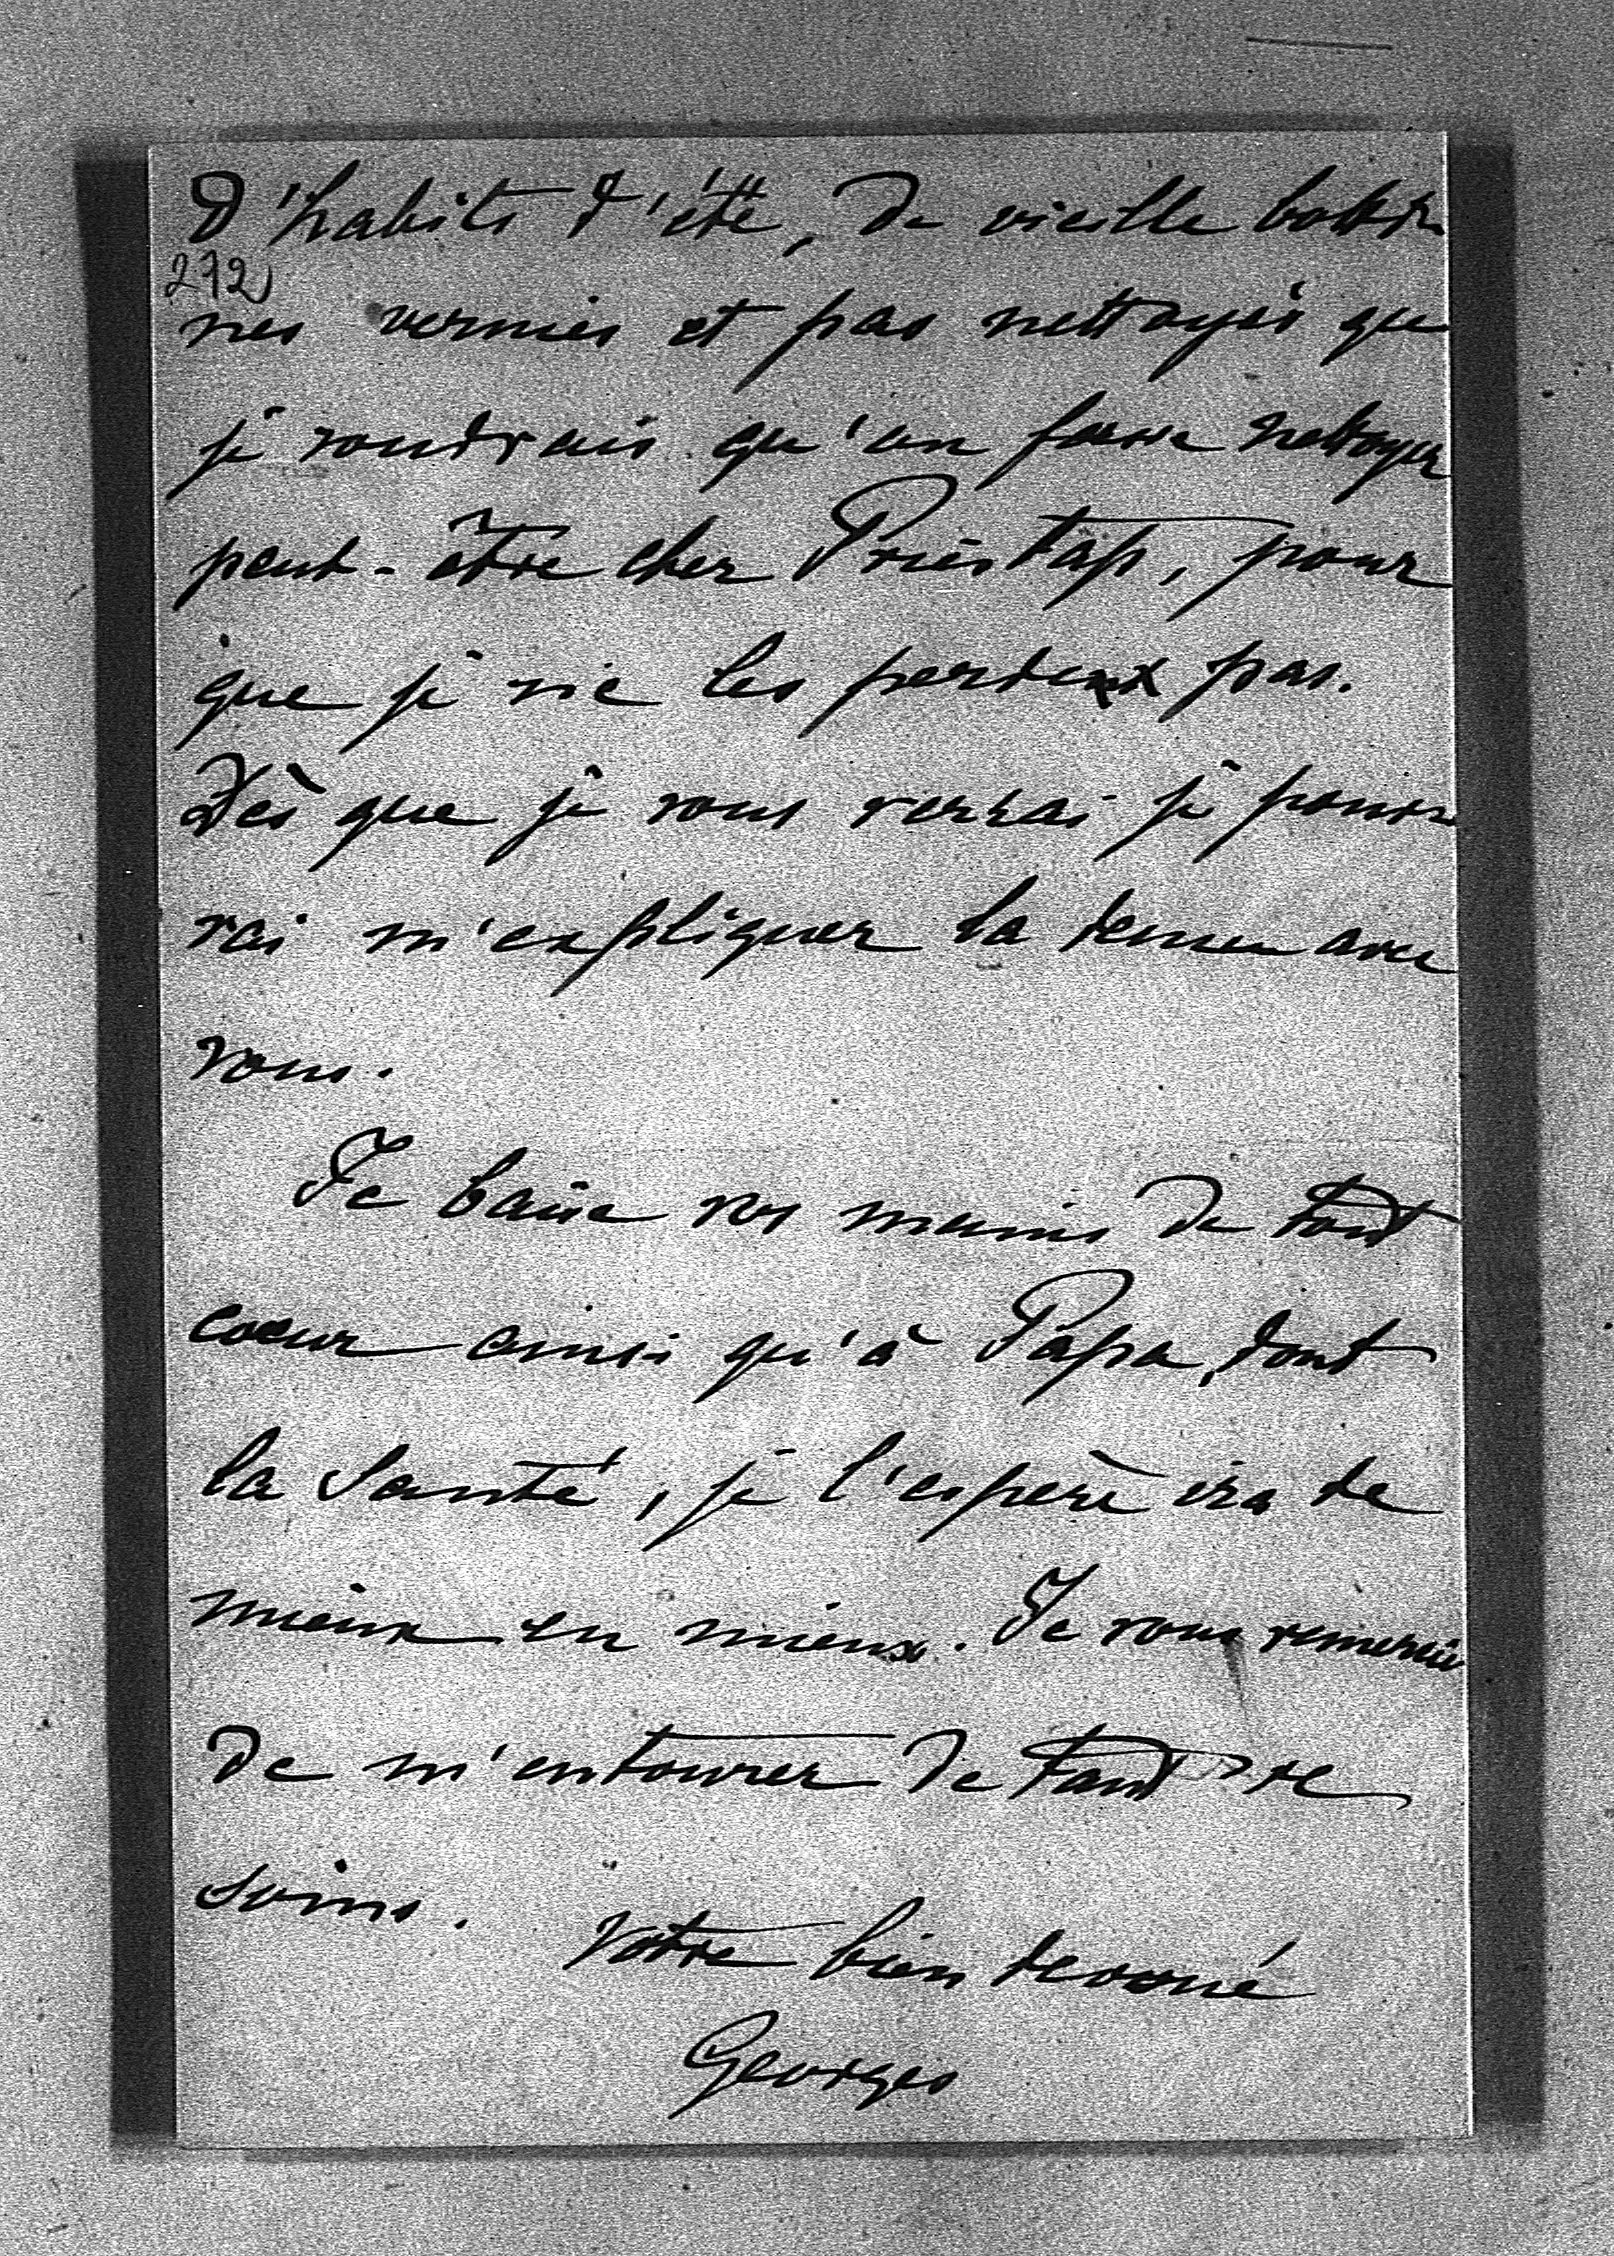 D'habits d'été, de vieille botti
272
nes vernies et pas nettoyés que
je voudrais qu'on fasse nettoyer
peut-être chez Priestap, pour
que je ne les perde pas.
Dès que je vous verrai je pour
rai m'expliquer la dessus avec
vous.
Je baise vos mains de tout
coeur ainsi qu'à Papa, dont
la Santé, je l'espère ira de
mieux en mieux. Je vous remercie
de m'entourer de tant de
soins.
Votre bien devoué
Georges